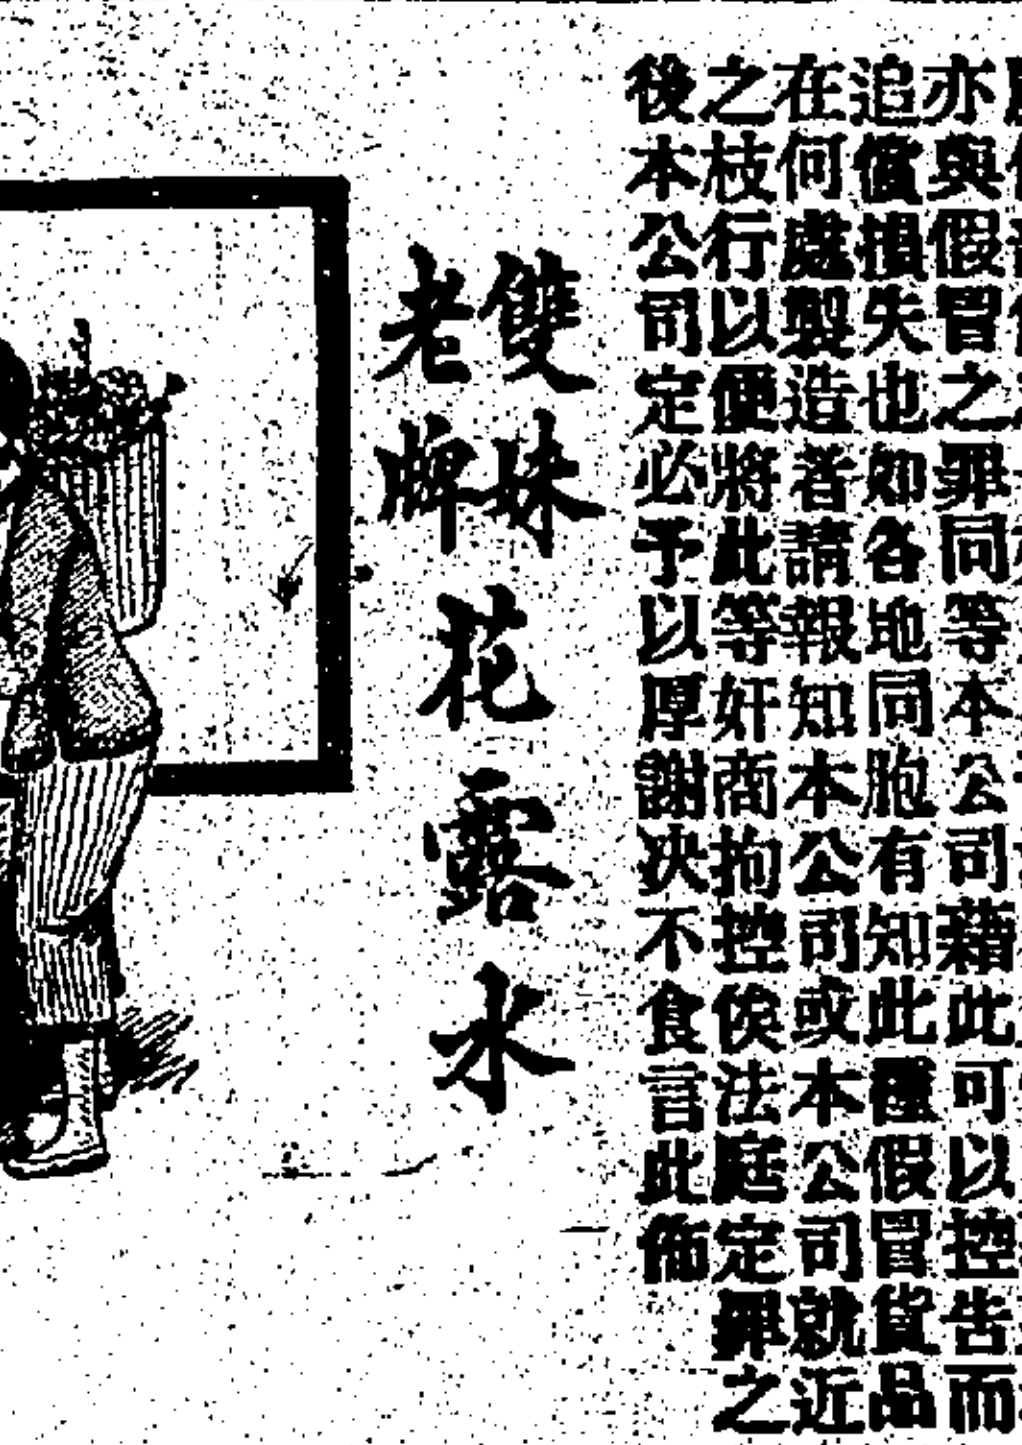 亦與假冒之罪同等本公司藉此可以控告而
追償損失也如各地同胞有知此種假冒貨品
在何處製造者請報知本公司或本公司就近
之枝行以便將此等奸商拘控俟法庭定罪之
後本公司定必予以厚謝决不食言此佈
雙妹
老牌
花露水